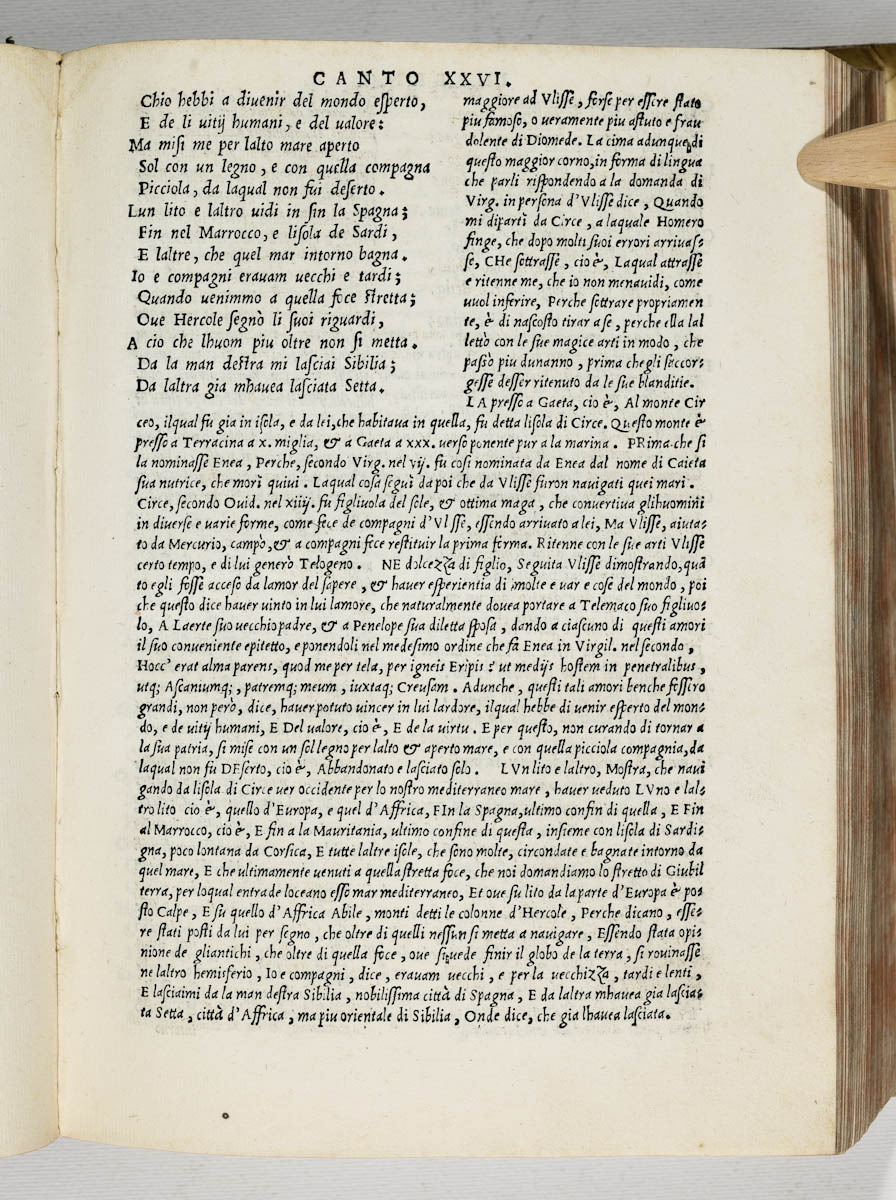 CANTO XXVI.
Chio hebbi a diuenir del mondo esperto,
E de li uitij humani, e del ualore:
Ma misi me per lalto mare aperto
Sol con un legno, e con quella compagna
Picciola, da laqual non fui deserto.
Lun lito e laltro uidi in fin la Spagna;
Fin nel Marrocco, e lisola de Sardi,
E laltre, che quel mar intorno bagna.
Io e compagni erauam uecchi e tardi;
Quando uenimmo a quella foce stretta;
Oue Hercole segnò li suoi riguardi,
A cio che lhuom piu oltre non si metta.
Da la man destra mi lasciai Sibilia;
Da laltra gia mhauea lasciata Setta.
maggiore ad Vlisse, forse per essere stato
piu famoso, o ueramente piu astuto e frau
dolente di Diomede. La cima adunque di
questo maggior corno, in forma di lingua
che parli rispondendo a la domanda di
Virg. in persona d'Vlisse dice, Quando
mi diparti da Circe, a laquale Homero
finge, che dopo molti suoi errori arriuas-
se, CHe sottrasse, cio è, Laqual attrasse
e ritenne me, che io non menauidi, come
uuol inferire, Perche sottrare propriamen
te, è di nascosto tirar a se, perche ella lal
lettò con le sue magice arti in modo, che
passò piu dunanno, prima che gli saccor-
gesse desser ritenuto da le sue blanditie.
LA presso a Gaeta, cio è, Al monte Cir
ceo, ilqual fu gia in isola, e da lei, che habitaua in quella, fu detta lisola di Circe. Questo monte è
presso a Terracina a x. miglia, & a Gaeta a xxx. uerso ponente pur a la marina. PRima che si
la nominasse Enea, Perche, secondo Virg. nel vij. fu cosi nominata da Enea dal nome di Caieta
sua nutrice, che morì quiui. Laqual cosa seguì da poi che da Vlisse furon nauigati quei mari.
Circe, secondo Ouid. nel xiiij. fu figliuola del sole, & ottima maga, che conuertiua glihuomini
in diuerse e uarie forme, come fece de compagni d'Vlisse, essendo arriuato a lei, Ma Vlisse, aiuta-
to da Mercurio, campo, & a compagni fece restituir la prima forma. Ritenne con le sue arti Vlisse
certo tempo, e di lui generò Telogeno. NE dolcezza di figlio, Seguita Vlisse dimostrando, quā
to egli fosse acceso da lamor del sapere, & hauer esperientia di molte e uar e cose del mondo, poi
che questo dice hauer uinto in lui lamore, che naturalmente douea portare a Telemaco suo figliuo-
lo, A Laerte suo uecchio padre, & a Penelope sua diletta sposa, dando a ciascuno di questi amori
il suo conueniente epitetto, e ponendoli nel medesimo ordine che fa Enea in Virgil. nel secondo,
Hocc' erat alma parens, quod me per tela, per igneis Eripis? ut medijs hostem in penetralibus,
utq; Ascaniumq;, patremq; meum, iuxtaq; Creusam. Adunche, questi tali amori benche fessiro
grandi, non però, dice, hauer potuto uincer in lui lardore, ilqual hebbe di uenir esperto del mon-
do, e de uitij humani, E Del ualore, cio è, E de la uirtu. E per questo, non curando di tornar a
la sua patria, si mise con un sol legno per lalto & aperto mare, e con quella picciola compagnia, da
laqual non fu DEserto, cio è, Abbandonato e lasciato solo. LVn lito e laltro, Mostra, che naui
gando da lisola di Circe uer occidente per lo nostro mediterraneo mare, hauer ueduto LVno e lal-
tro lito cio è, quello d'Europa, e quel d'Affrica, FIn la Spagna, ultimo confin di quella, E Fin
al Marrocco, cio è, E fin a la Mauritania, ultimo confine di questa, insieme con lisola di Sardi-
gna, poco lontana da Corsica, E tutte laltre isole, che sono molte, circondate e bagnate intorno da
quel mare, E che ultimamente uenuti a quella stretta foce, che noi domandiamo lo stretto di Giubil
terra, per loqual entra de loceano esso mar mediterraneo, Et oue su lito da la parte d'Europa è po-
sto Calpe, E su quello d'Affrica Abile, monti detti le colonne d'Hercole, Perche dicano, esse-
re stati posti da lui per segno, che oltre di quelli nessun si metta a nauigare, Essendo stata opi-
nione de gliantichi, che oltre di quella foce, oue si uede finir il globo de la terra, si rouinasse
ne laltro hemisferio, Io e compagni, dice, erauam uecchi, e per la uecchizza, tardi e lenti,
E lasciaimi da la man destra Sibilia, nobilissima città di Spagna, E da laltra mhauea gia lascia-
ta Setta, città d'Affrica, ma piu orientale di Sibilia, Onde dice, che gia lhauea lasciata.